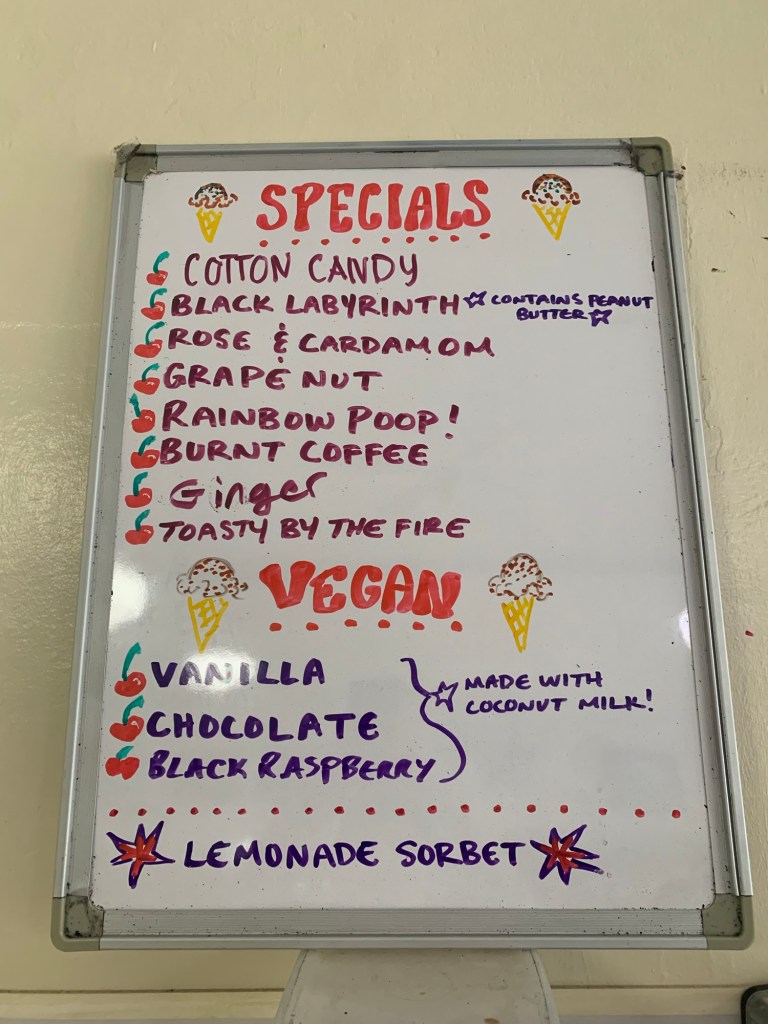 SPECIALS
COTTON CANDY
BLACK LABYRINTH ☆ CONTAINS PEANUT
BUTTER ☆
ROSE & CARDAMOM
GRAPE NUT
RAINBOW POOP!
BURNT COFFEE
Ginger
TOASTY BY THE FIRE
VEGAN
VANILLA
CHOCOLATE
BLACK RASPBERRY
☆ MADE WITH
COCONUT MILK!
LEMONADE SORBET